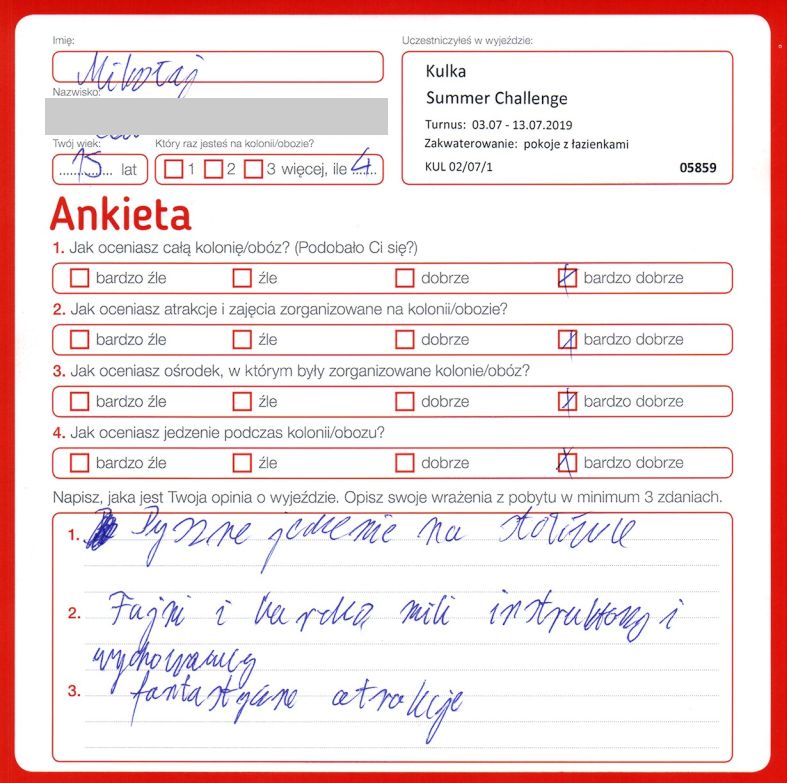 Imię:
Mikołaj
Nazwisko:
Twój wiek:
15 lat
Który raz jesteś na kolonii/obozie?
1 2 3 więcej, ile 4
Uczestniczyłeś w wyjeździe:
Kulka
Summer Challenge
Turnus: 03.07 - 13.07.2019
Zakwaterowanie: pokoje z łazienkami
KUL 02/07/1 05859
Ankieta
1. Jak oceniasz całą kolonię/obóz? (Podobało Ci się?)
bardzo źle źle dobrze bardzo dobrze
2. Jak oceniasz atrakcje i zajęcia zorganizowane na kolonii/obozie?
bardzo źle źle dobrze bardzo dobrze
3. Jak oceniasz ośrodek, w którym były zorganizowane kolonie/obóz?
bardzo źle źle dobrze bardzo dobrze
4. Jak oceniasz jedzenie podczas kolonii/obozu?
bardzo źle źle dobrze bardzo dobrze
Napisz, jaka jest Twoja opinia o wyjeździe. Opisz swoje wrażenia z pobytu w minimum 3 zdaniach.
1. Pyszne jedzenie na stołówce
2. Fajni i bardzo mili instruktorzy i
wychowawcy
3. fantastyczne atrakcje